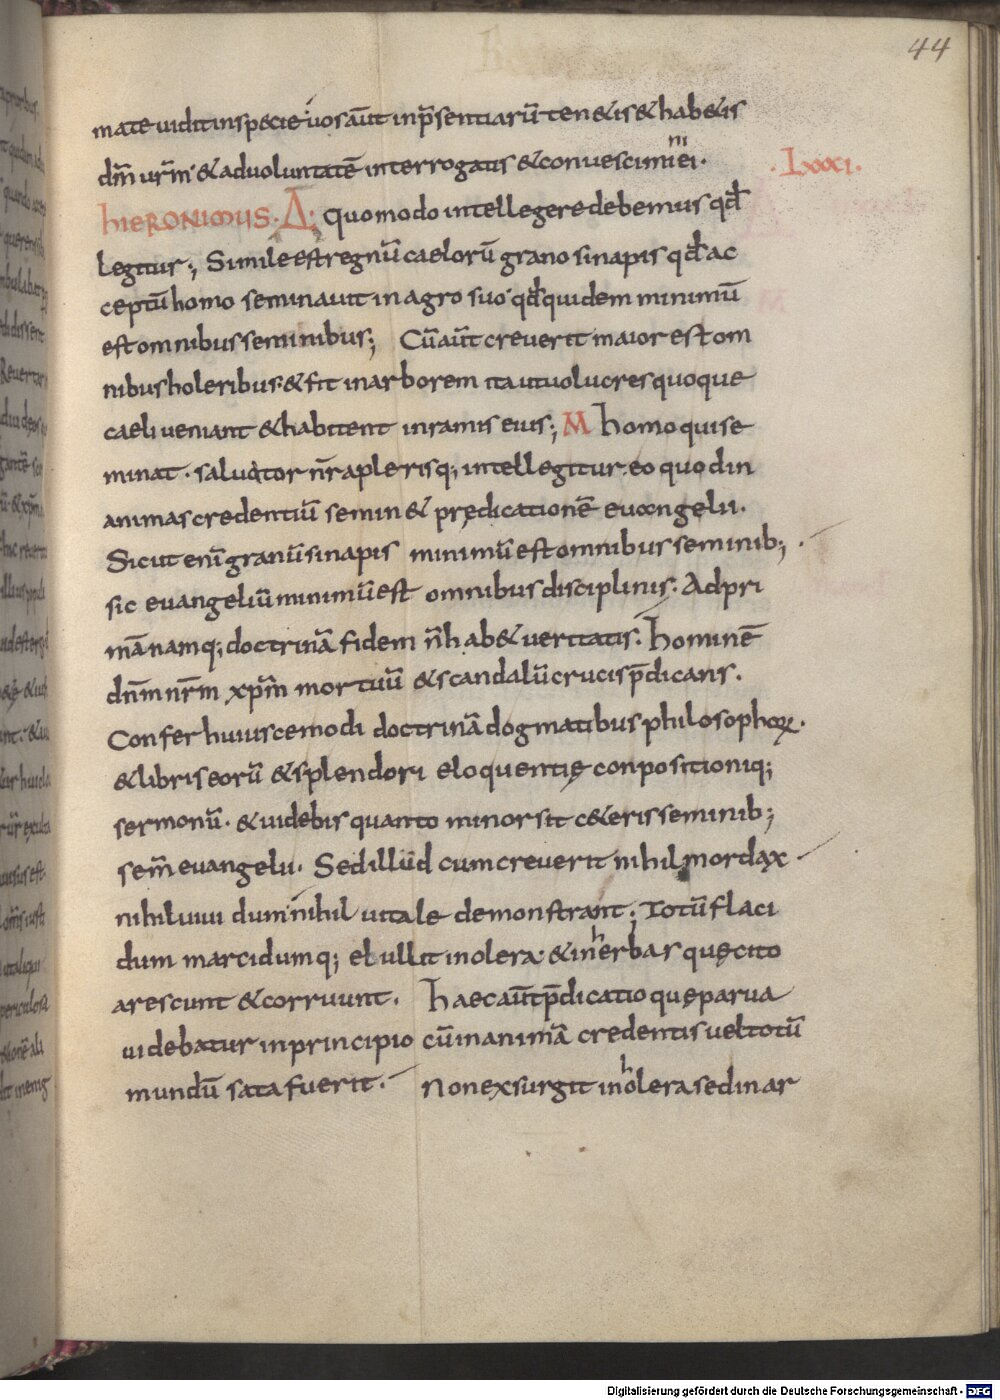 44
mate uidit inspecie uos aūt inp̄sentiarū ten&is & hab&is
dn̄m ur̄m & aduoluntatē interrogatis & conuescimini ei.
.Lxxxi.
hIERONIMUS. Δ; Quomodo intellegere debemus qđ
legitur; Simile est regnū caelorū grano sinapis qđ ac
ceptū homo seminauit in agro suo qđ quidem minimū
est omnibus seminibus; Cū aūt creuerit maior est om
nibus holeribus & fit in arborem ita ut uolucres quoque
caeli ueniant & habitent in ramis eius; M homo qui se
minat. saluator n̄r a plerisq; intellegitur eo quod in
animas credentiū semin& prędicationē euangelii.
Sicut enī granū sinapis minimū est omnibus seminib;
sic euangeliū minimū est omnibus disciplinis. Ad pri
mā namq; doctrinā fidem n̄ hab& ueritatis. hominē
dn̄m nr̄m xp̄m mortuū & scandalū crucis p̄dicans.
Confer huiuscemodi doctrinā dogmatibus philosophoꝝ.
& libris eorū & splendori eloquentię conpositioniq;
sermonū. & uidebis quanto minor sit c&eris seminib;
sem̄ euangelii. Sed illud cum creuerit nihil mordax
nihil uiuidum nihil uitale demonstrant; Totū flaci
dum marcidumq; et ebullit in olera & in herbas quę cito
arescunt & corruunt. haec aūt p̄dicatio quę parua
uidebatur in principio cū in animā credentis uel totū
mundū sata fuerit. Non exsurgit in holera sed in ar
Digitalisierung gefördert durch die Deutsche Forschungsgemeinschaft - DFG